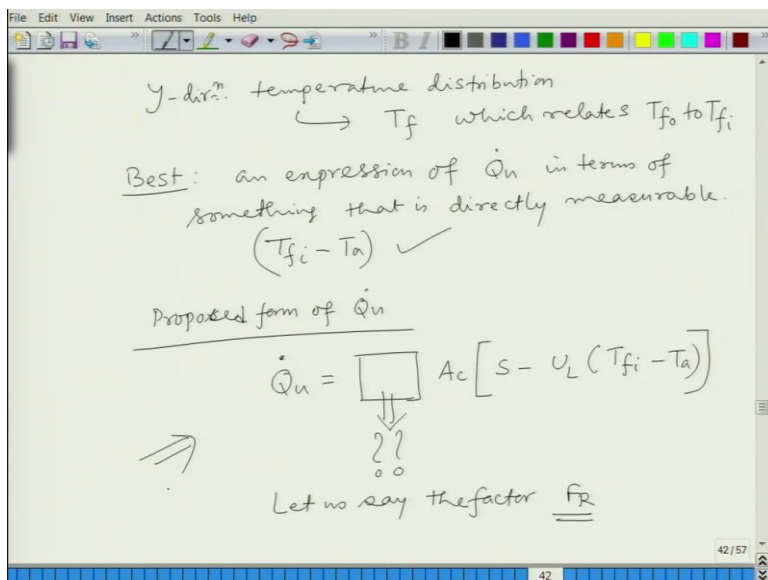 File Edit View Insert Actions Tools Help
B I
y-dirⁿ. temperature distribution
↳ Tf which relates Tfo to Tfi
Best: an expression of Q̇u in terms of
something that is directly measurable.
(Tfi - Ta) ✓
Proposed form of Q̇u
Q̇u = □ Ac [S - UL (Tfi - Ta)]
⇓
??
⇒
Let us say the factor FR
42/57
42